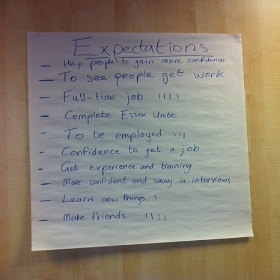 Expectations
- Help people to gain more confidence
- To see people get work
- Full-time job !!!!
- Complete Essex Unite
- To be employed !!!
- Confidence to get a job
- Get experience and training
- More confident and savvy in interviews
- Learn new things !
- Make friends !!!!